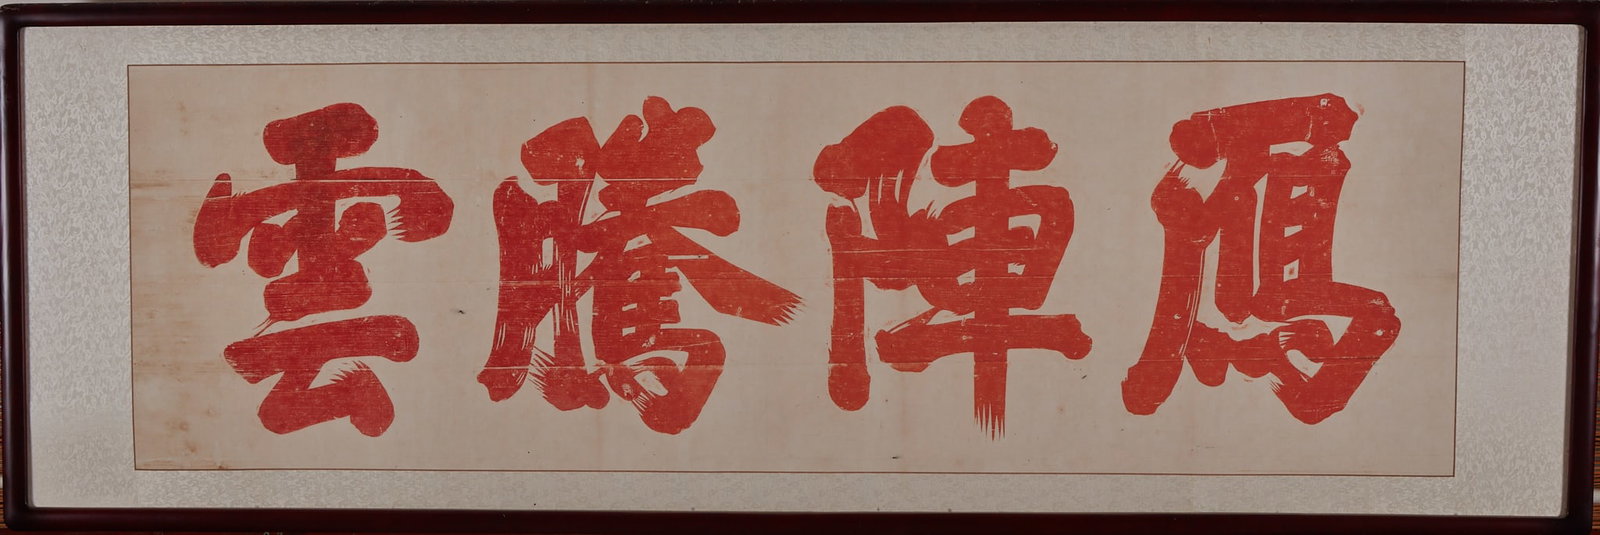 鴈陣騰雲